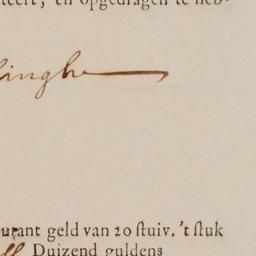 teert, en opgedragen te heb-
linghe
urant geld van 20 ſtuiv. 't ſtuk
Duizend guldens